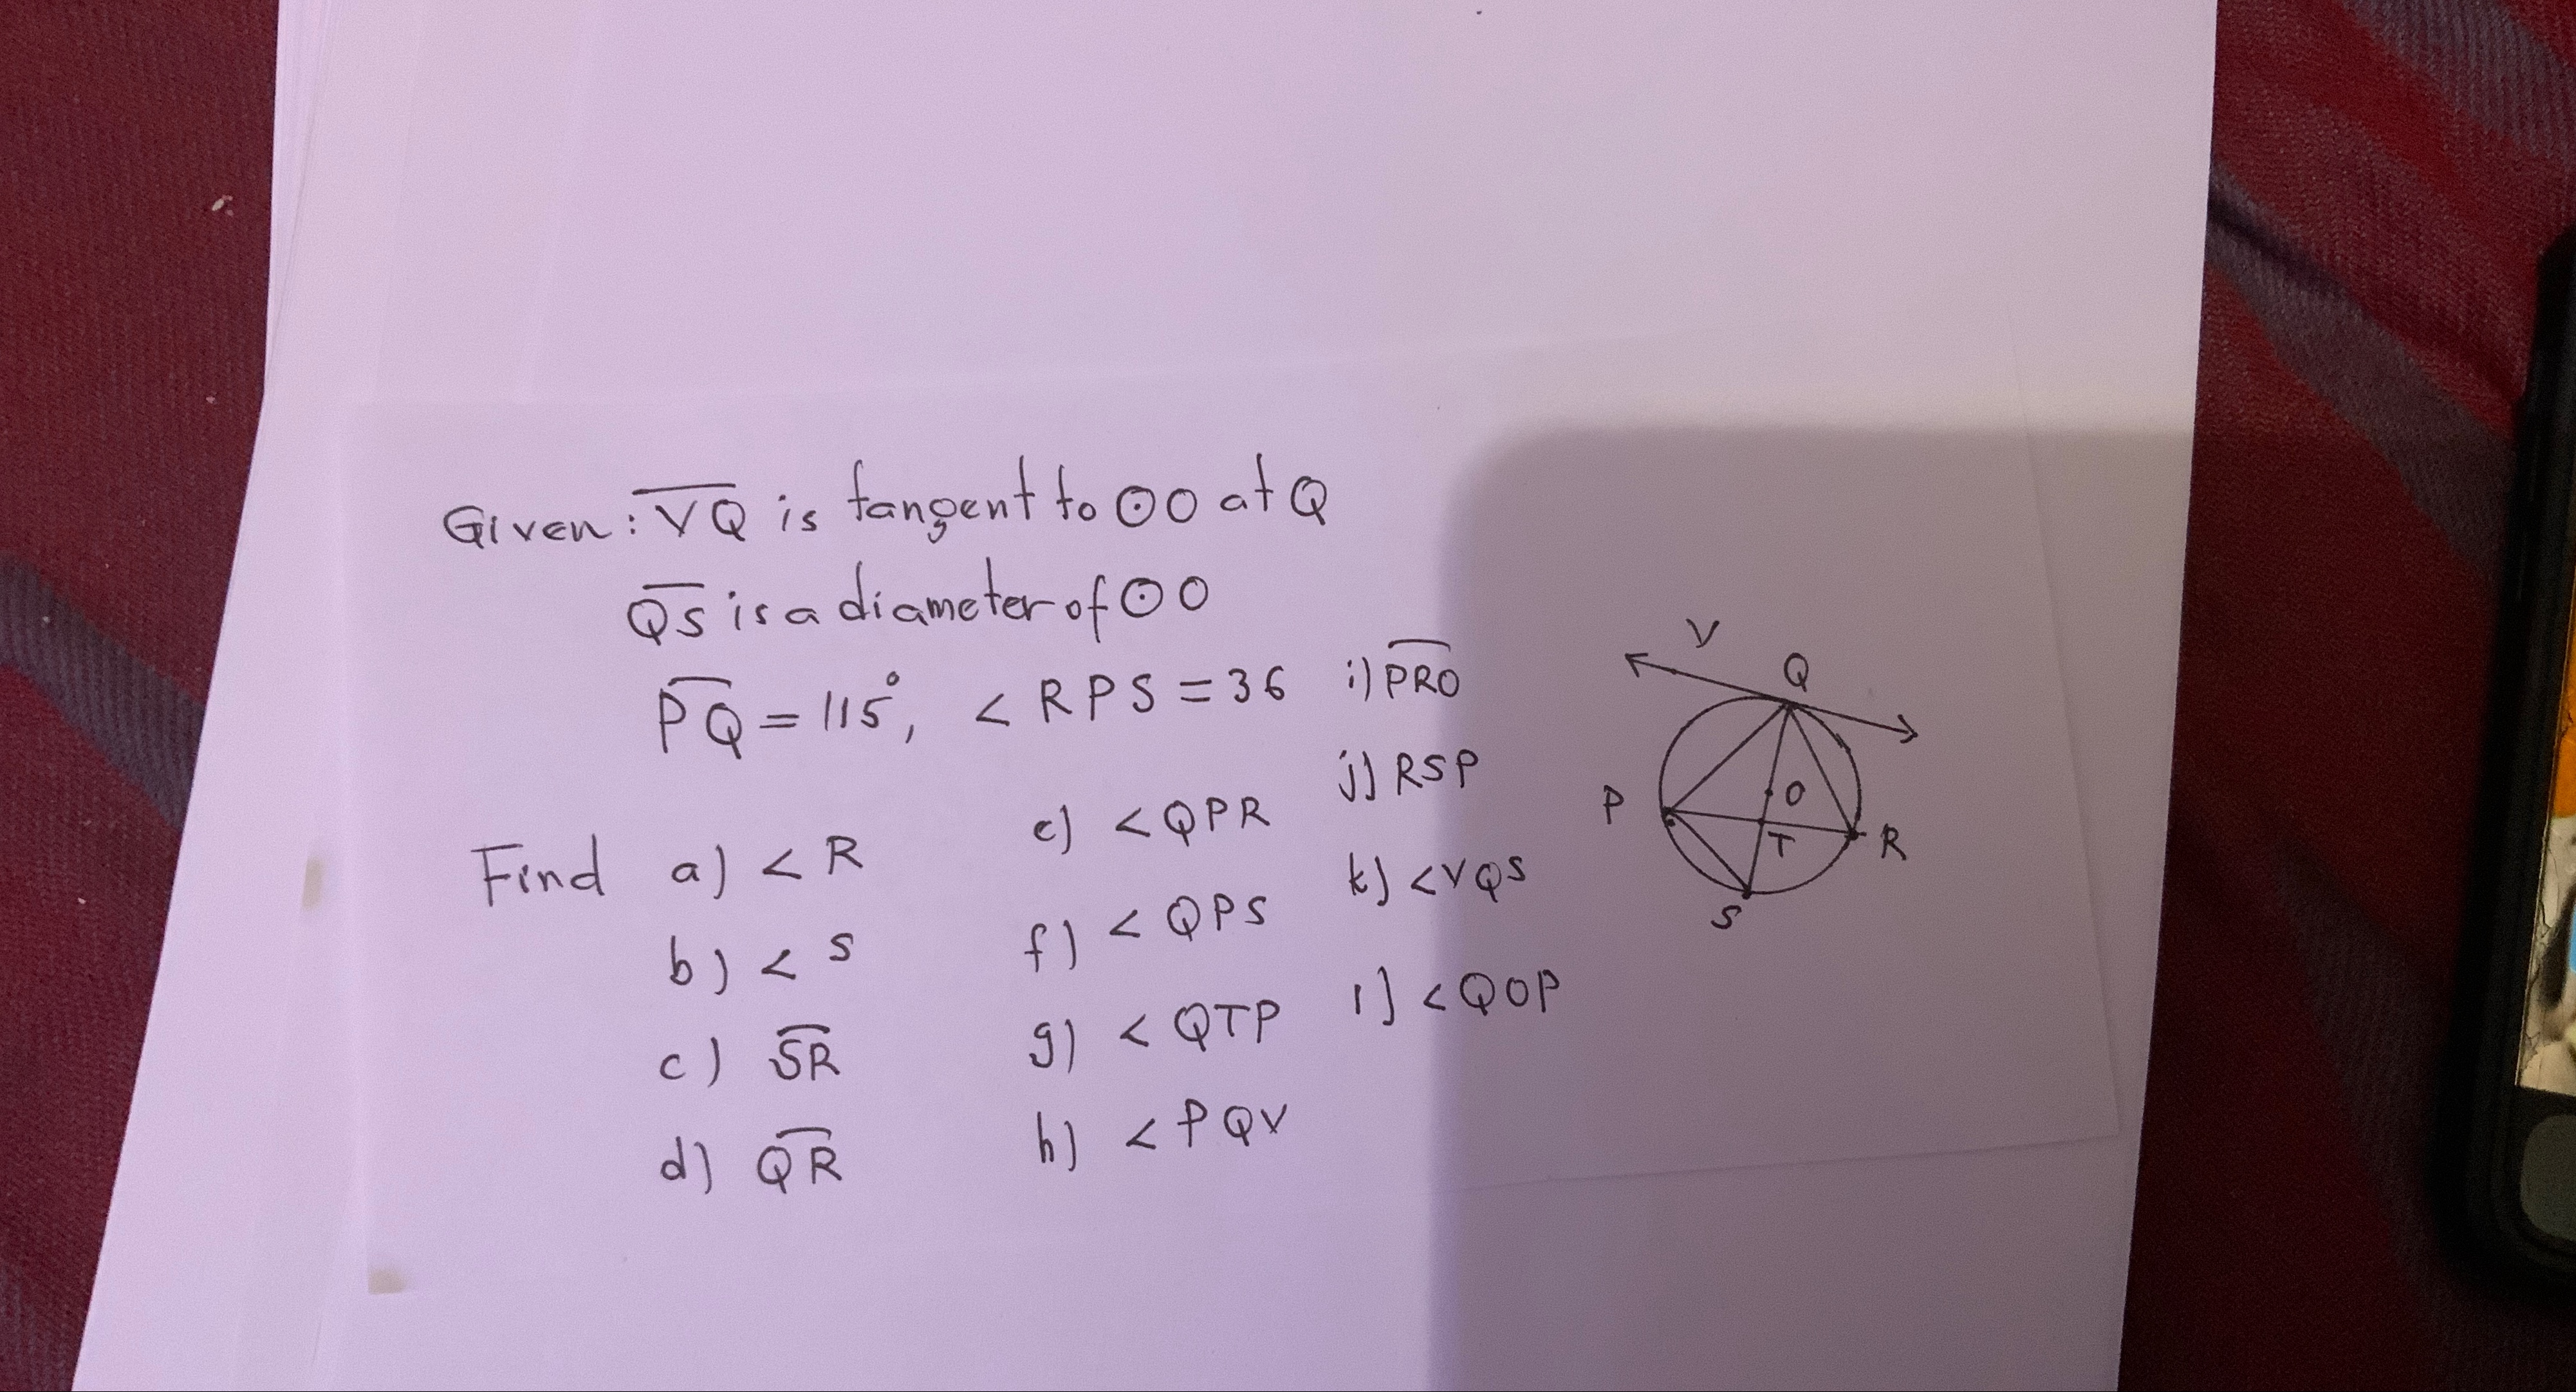 Given: V̅Q̅ is tangent to ⊙O at Q
Q̅S̅ is a diameter of ⊙O
P͡Q = 115°, < RPS = 36
Find a) < R
b) < S
c) S͡R
d) Q͡R
e) < QPR
f) < QPS
g) < QTP
h) < PQV
i) P͡RO
j) RSP
k) < VQS
l) < QOP
V
Q
P
O
T
R
S